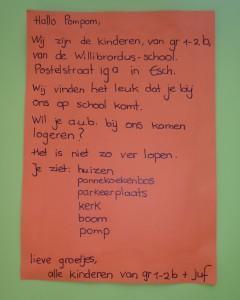 Hallo Pompom,
Wij zijn de kinderen, van gr 1-2b,
van de Willibrordus-school.
Postelstraat 19a in Esch.
Wij vinden het leuk dat je bij
ons op school komt.
Wil je a.u.b. bij ons komen
logeren?
Het is niet zo ver lopen.
Je ziet: huizen
pannekoekenbos
parkeerplaats
kerk
boom
pomp
lieve groetjes,
alle kinderen van gr 1-2b + juf